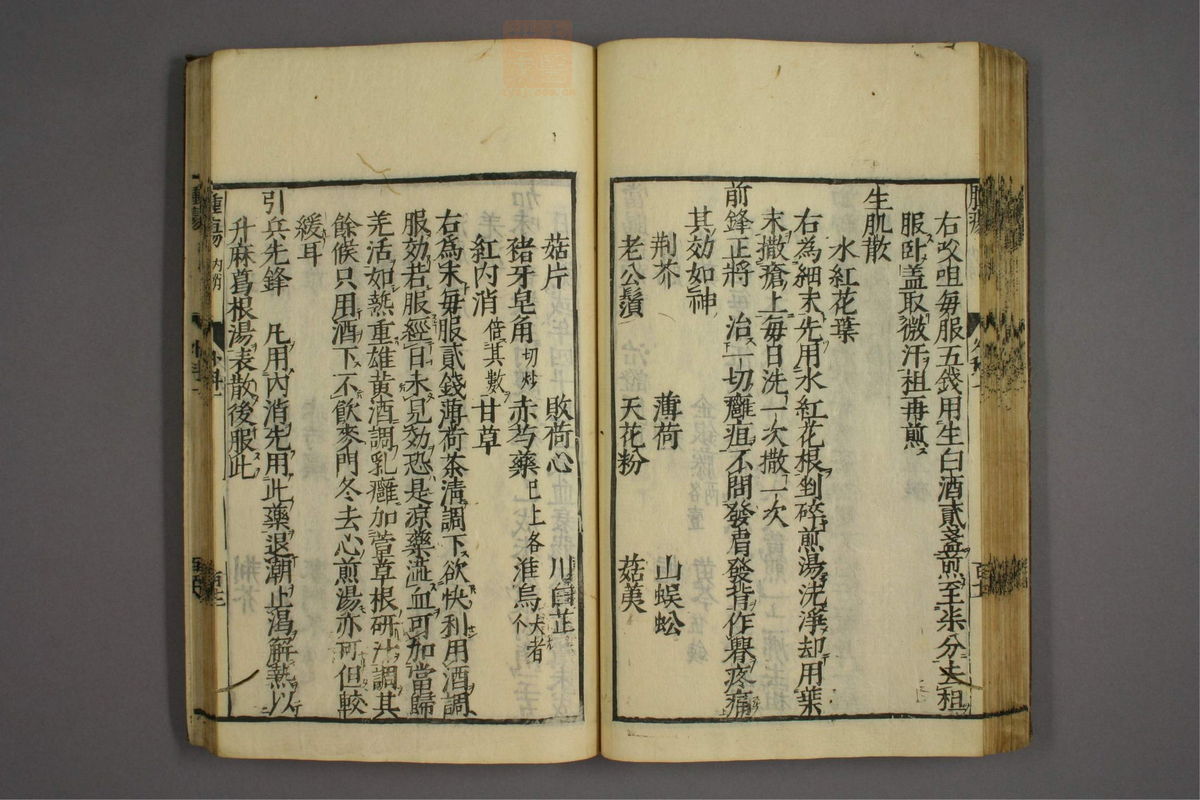 右㕮咀毎服五錢用生白酒貳盞煎至柒分去柤
服卧盖取微汗柤再煎
生肌散
水紅花葉
右為細末先用水紅花根剉碎煎湯洗淨却用葉
末撒瘡上毎日洗一次撒一次
前鋒正將 治一切癰疽不問發眉發背作臖疼痛
其効如神
荆芥 薄荷 山蜈蚣
老公鬚 天花粉 菇荑
菇片 敗荷心 川白芷
豬牙皂角切炒 赤芍藥已上各 淮烏大者 个
紅内消倍其數 甘草
右為末毎服貳錢薄荷茶清調下欲快利用酒調
服効若服經日未見効恐是凉藥澁血可加當歸
羌活如熱重雄黄酒調乳癰加萱草根研汁調其
餘候只用酒下不飲麥門冬去心煎湯亦可但較
緩耳
引兵先鋒 凡用内消先用此藥退潮止渴解熱以
升麻葛根湯表散後服此